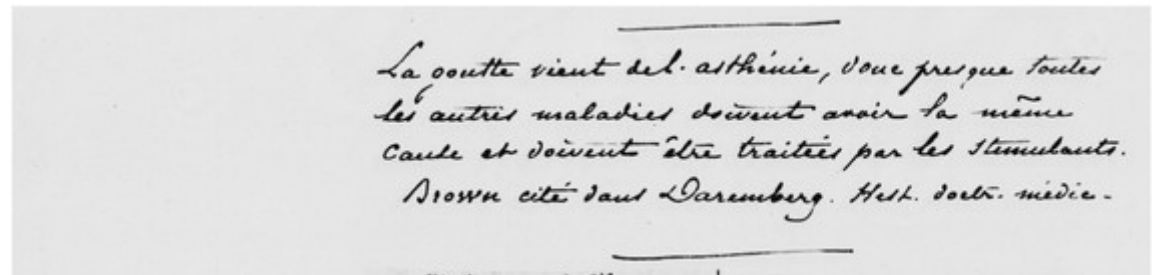 La goutte vient de l'asthénie, donc presque toutes
les autres maladies doivent avoir la même
cause et doivent être traitées par les stimulants.
Brown cité dans Daremberg. Hist. doctr. médic.